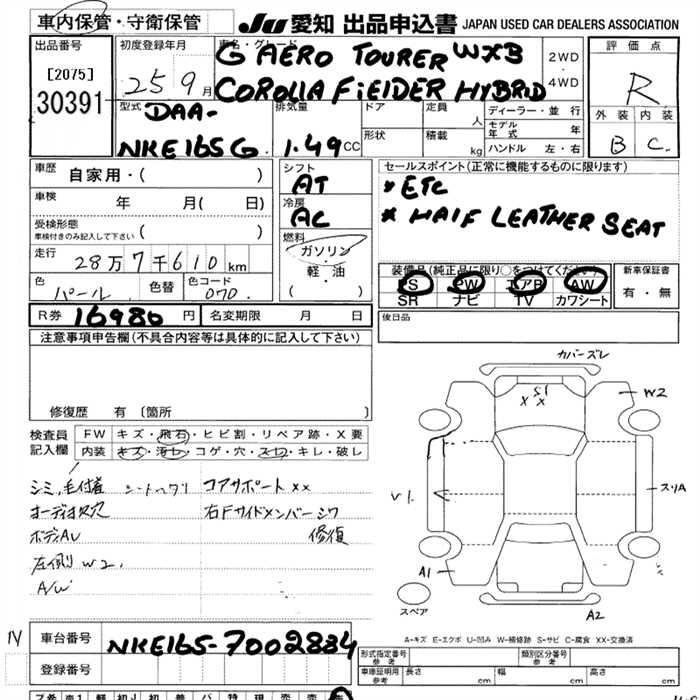 車内保管・守衛保管
JU愛知 出品申込書 JAPAN USED CAR DEALERS ASSOCIATION
出品番号
[2075]
30391
初度登録年月
25 9月
車名・グレード
G AERO TOURER WXB
COROLLA FiElDER HYBRID
2WD
・
4WD
評価点
R
外装 内装
B C
型式
DAA-
NKE165G
排気量
1.49cc
ドア
形状
定員 人
積載 kg
ディーラー・並行
モデル年式 年
ハンドル 左・右
車歴 自家用・( )
車検 年 月( 日)
受検形態
車検付きのみ記入して下さい ( )
走行 28万7千610km
色 パール
色替
色コード 070
シフト
AT
冷房
AC
燃料
ガソリン
・
軽・油
( )
セールスポイント(正常に機能するものに限ります)
* ETC
* HAIF LEATHER SEAT
装備品(純正品に限り○をつけてください)
PS PW エアB AW
SR ナビ TV カワシート
新車保証書
有・無
R券 16980円 名変期限 月 日
後日品
注意事項申告欄(不具合内容等は具体的に記入して下さい)
修復歴 有 〔箇所 〕
検査員
記入欄
FW キズ・飛石・ヒビ割・リペア跡・X要
内装 キズ・汚レ・コゲ・穴・スレ・キレ・破レ
シミ,毛付着 シートヘタリ コアサポートxx
オーディオ欠穴 右Fサイドメンバーシワ
ボディAU 修復
左右側 W2.
A/W
カバーズレ
S1
x x
W2
V1
スリA
A1
スペア
A2
A-キズ E-エクボ U-凹み W-補修跡 S-サビ C-腐食 XX-交換済
車台番号 NKE165-7002834
登録番号
形式指定番号
参考
類別区分番号
参考
車庫証明用
参考
長さ cm 幅 cm 高さ cm